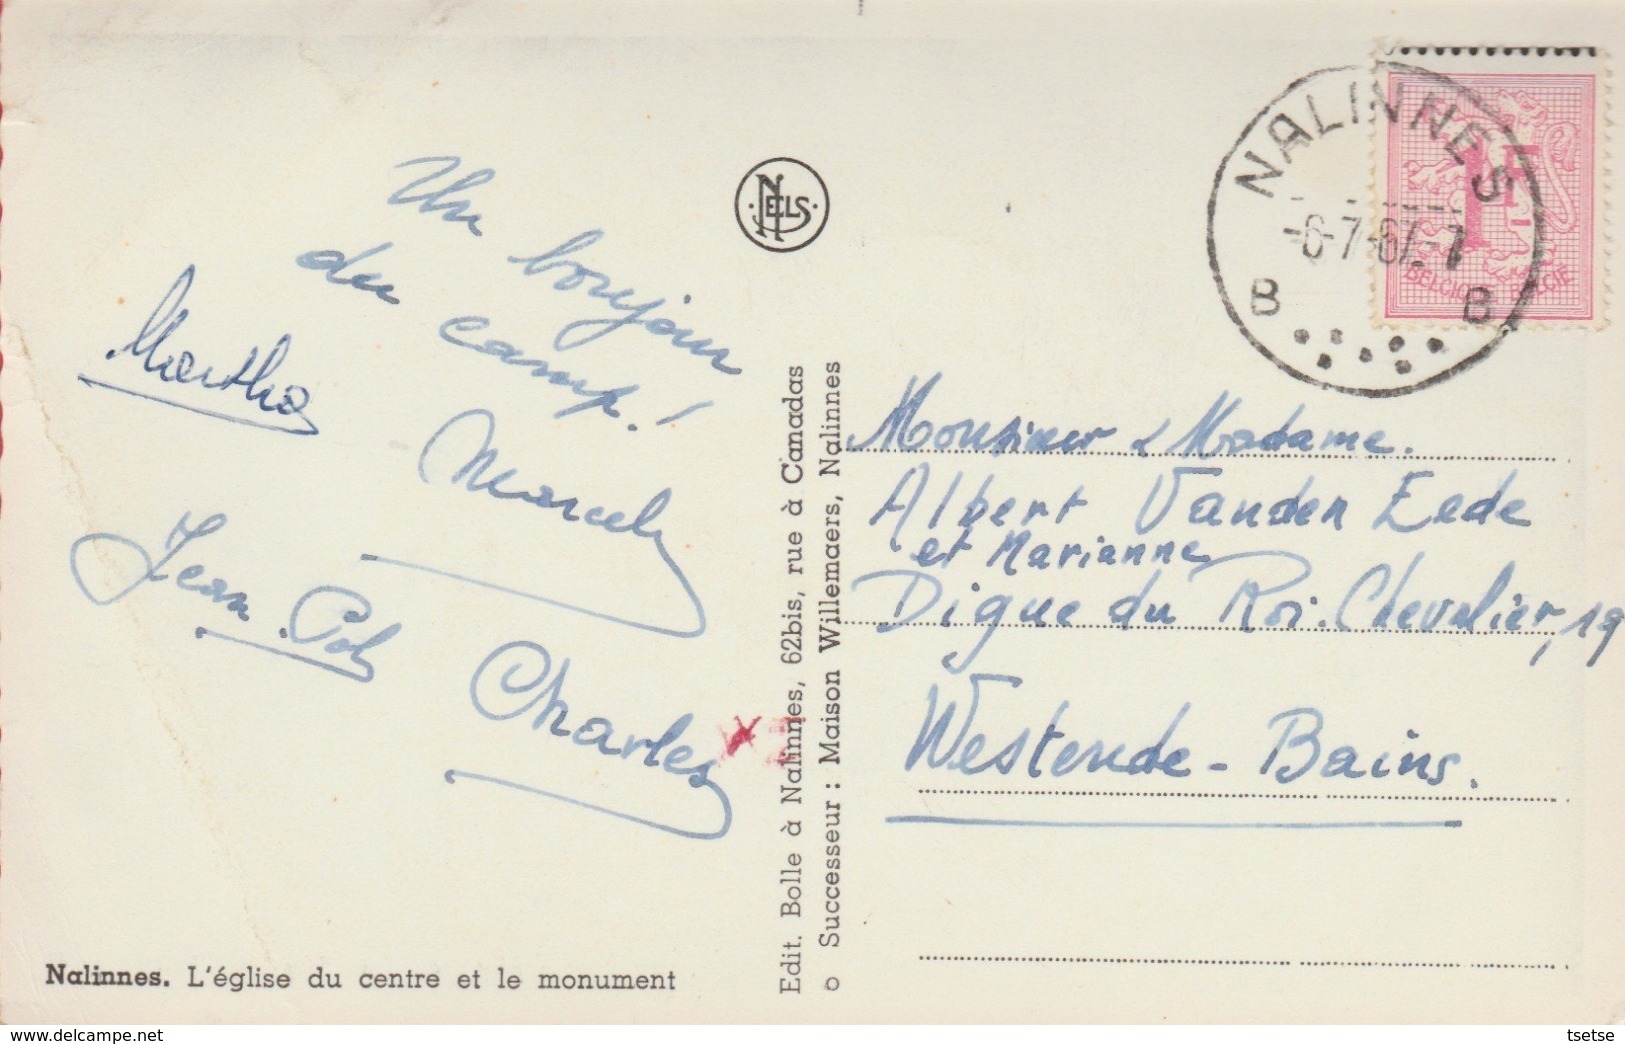 Un bonjour
du camp!
Martha
Marcel
Jean-Pol
Charles
Nalinnes. L'église du centre et le monument
NELS
Edit. Bolle à Nalinnes, 62bis, rue à Canadas
o Successeur : Maison Willemaers, Nalinnes
NALINNES
-6-7-67.-7
B B
1F
BELGIQUE BELGIË
Monsieur & Madame.
Albert Vanden Eede
et Marianne
Digue du Roi. Chevalier, 19
Westende-Bains.
www.delcampe.net
tsetse